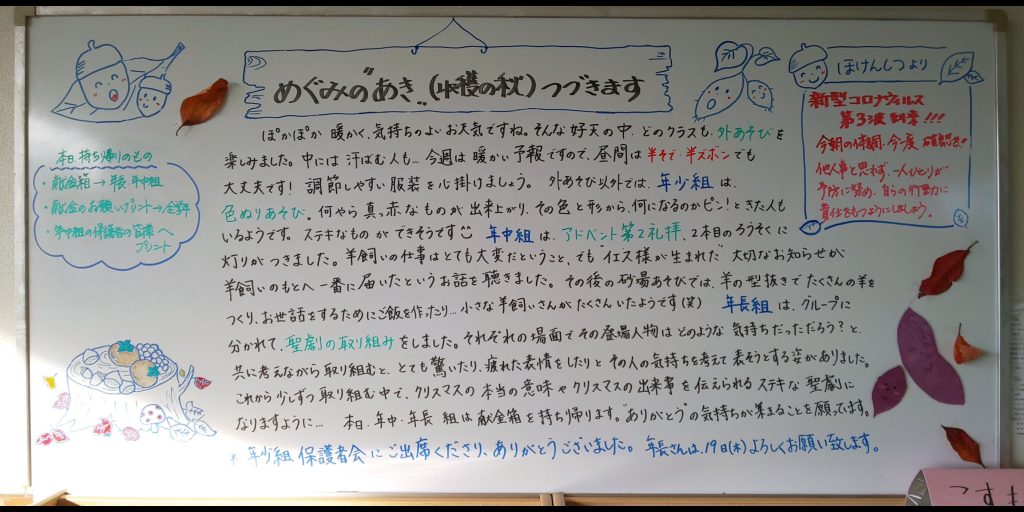 めぐみの"あき"(収穫の秋)つづきます
ぽかぽか 暖かく、気持ちのよいお天気ですね。そんな好天の中、どのクラスも、外あそびを
楽しみました。中には 汗ばむ人も… 今週は 暖かい予報ですので、昼間は半そで・半ズボンでも
大丈夫です! 調節しやすい服装を心掛けましょう。 外あそび以外では、年少組 は、
色ぬりあそび。何やら 真っ赤なものが 出来上がり、その色と形から、何になるのかピン!ときた人も
いるようです。ステキなもの ができそうです 年中組 は、アドベント第2礼拝、2本目のろうそくに
灯りがつきました。羊飼いの仕事はとても大変だということ、でも イエス様が生まれた" 大切なお知らせが
羊飼いのもとへ一番に届いたというお話を聴きました。その後の砂場あそびでは、羊の型抜きでたくさんの羊を
つくり、お世話をするためにご飯を作ったり… 小さな羊飼いさんがたくさんいたようです(笑) 年長組 は、グループに
分かれて、聖劇の取り組みをしました。それぞれの場面でその登場人物はどのような 気持ちだっただろう?と、
共に考えながら取り組むと、とても驚いたり、疲れた表情をしたりと その人の気持ちを考えて表そうとする姿がありました。
これから少しずつ取り組む中で、クリスマスの本当の意味やクリスマスの出来事を伝えられるステキな聖劇に
なりますように… 本日、年中・年長 組は献金箱を持ち帰ります。"ありがとう"の気持ちが集まることを願ってます。
* 年少組 保護者会 にご出席くださり、ありがとうございました。年長さんは、19日(木)よろしくお願い致します。
本日 持ち帰りのもの
・献金箱→年長・年中組
・献金のお願いプリント→全学年
・年中組の保護者の皆様へ
プリント
ほけんしつより
新型コロナウィルス
第3波到来!!!
今朝の体調、今一度 確認を!!
他人事と思わず、一人ひとりが
予防に努め、自らの行動に
責任をもつようにしましょう。